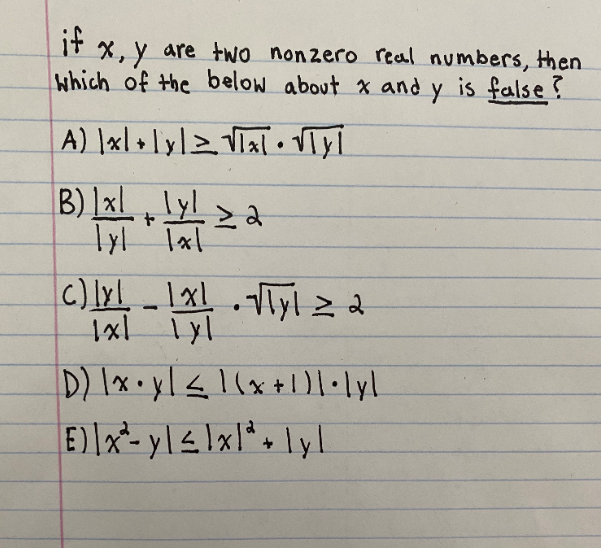 if x, y are two nonzero real numbers, then
which of the below about x and y is false?
A) |x| + |y| ≥ √|x| · √|y|
B) |x|/|y| + |y|/|x| ≥ 2
C) |y|/|x| - |x|/|y| · √|y| ≥ 2
D) |x · y| ≤ |(x + 1)| · |y|
E) |x² - y| ≤ |x|² + |y|